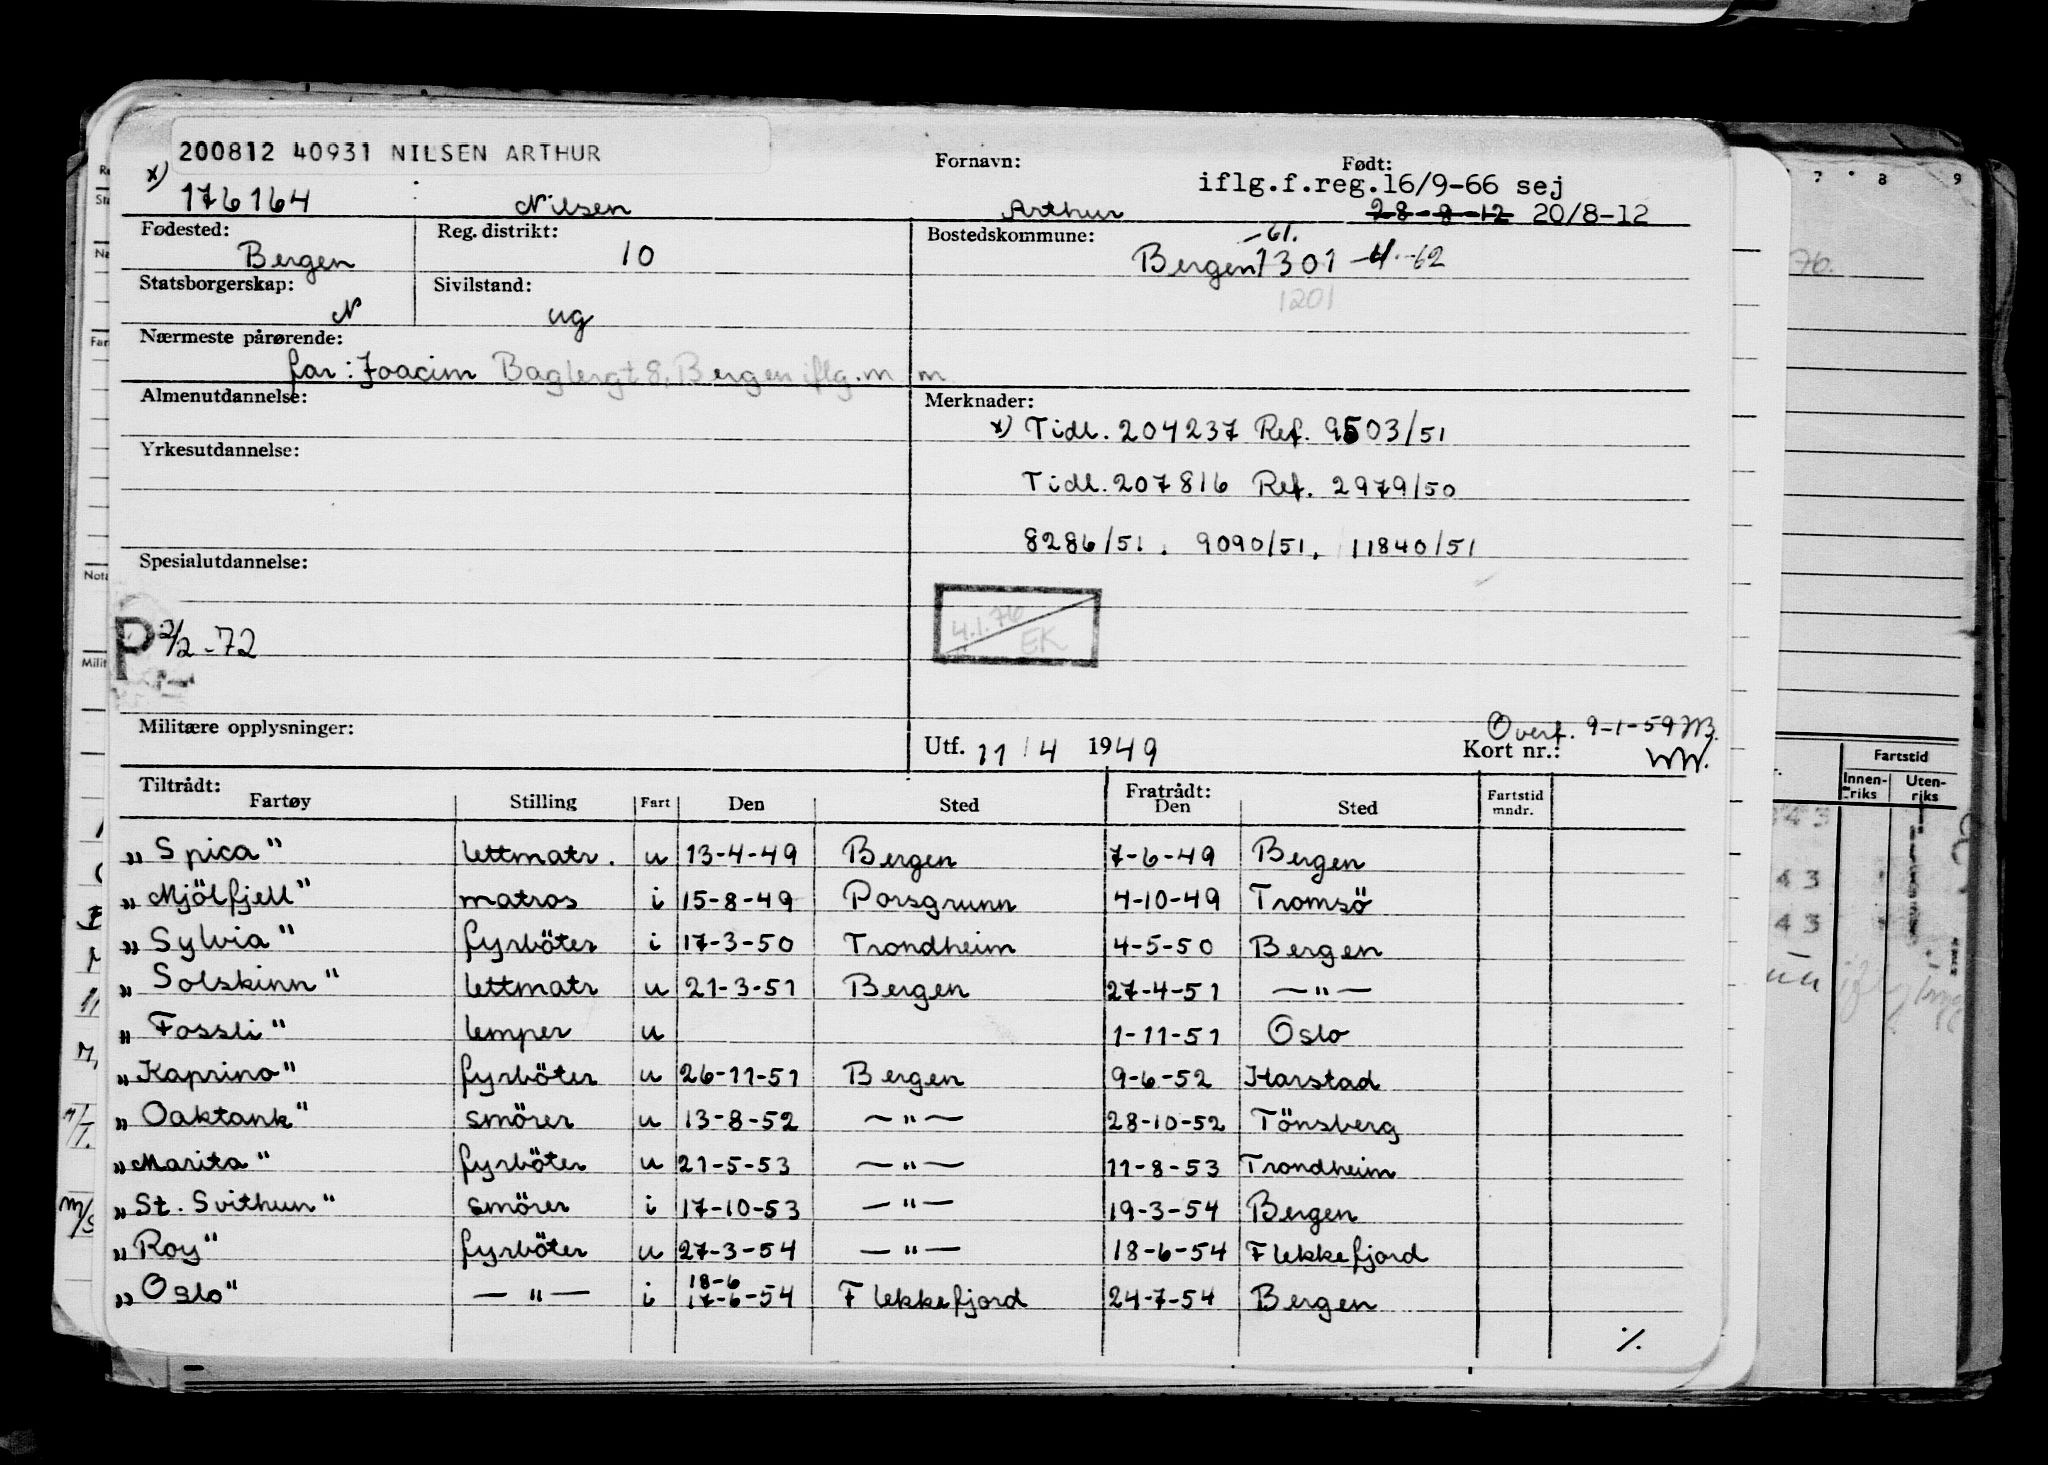 200812 40931 NILSEN ARTHUR
Fornavn: Født:
x) iflg.f.reg.16/9-66 sej
176164 Nilsen Arthur 28-8-12 20/8-12
Fødested: Reg. distrikt: Bostedskommune:
Bergen 10 Bergen 1301 -61. -4.-62
1201
Statsborgerskap: Sivilstand:
N ug
Nærmeste pårørende:
far: Joacim Baglergt 8, Bergen iflg. m m
Almenutdannelse: Merknader:
x) Tidl. 204237 Ref. 9503/51
Yrkesutdannelse:
Tidl. 207816 Ref. 2979/50
8286/51. 9090/51. 11840/51
Spesialutdannelse:
4.1.76
EK
P 2/2-72
Militære opplysninger:
Overf. 9-1-59
Utf. 11/4 1949 Kort nr.: WW.
Tiltrådt: Fratrådt:
Fartøy Stilling Fart Den Sted Den Sted Fartstid mndr.
„Spica" lettmatr. u 13-4-49 Bergen 7-6-49 Bergen
„Mjölfjell" matros i 15-8-49 Porsgrunn 4-10-49 Tromsö
„Sylvia" fyrböter i 17-3-50 Trondheim 4-5-50 Bergen
„Solskinn" lettmatr u 21-3-51 Bergen 27-4-51 —"—
„Fossli" lemper u 1-11-51 Oslo
„Kaprino" fyrböter u 26-11-51 Bergen 9-6-52 Harstad
„Oaktank" smörer u 13-8-52 —"— 28-10-52 Tönsberg
„Marita" fyrböter u 21-5-53 —"— 11-8-53 Trondheim
„St. Svithun" smörer i 17-10-53 —"— 19-3-54 Bergen
„Roy" fyrböter u 27-3-54 —"— 18-6-54 Flekkefjord
18-6
„Oslo" —"— i 17-6-54 Flekkefjord 24-7-54 Bergen
%
7 8 9
76.
Fartstid
Innen-riks Uten-riks
43
43